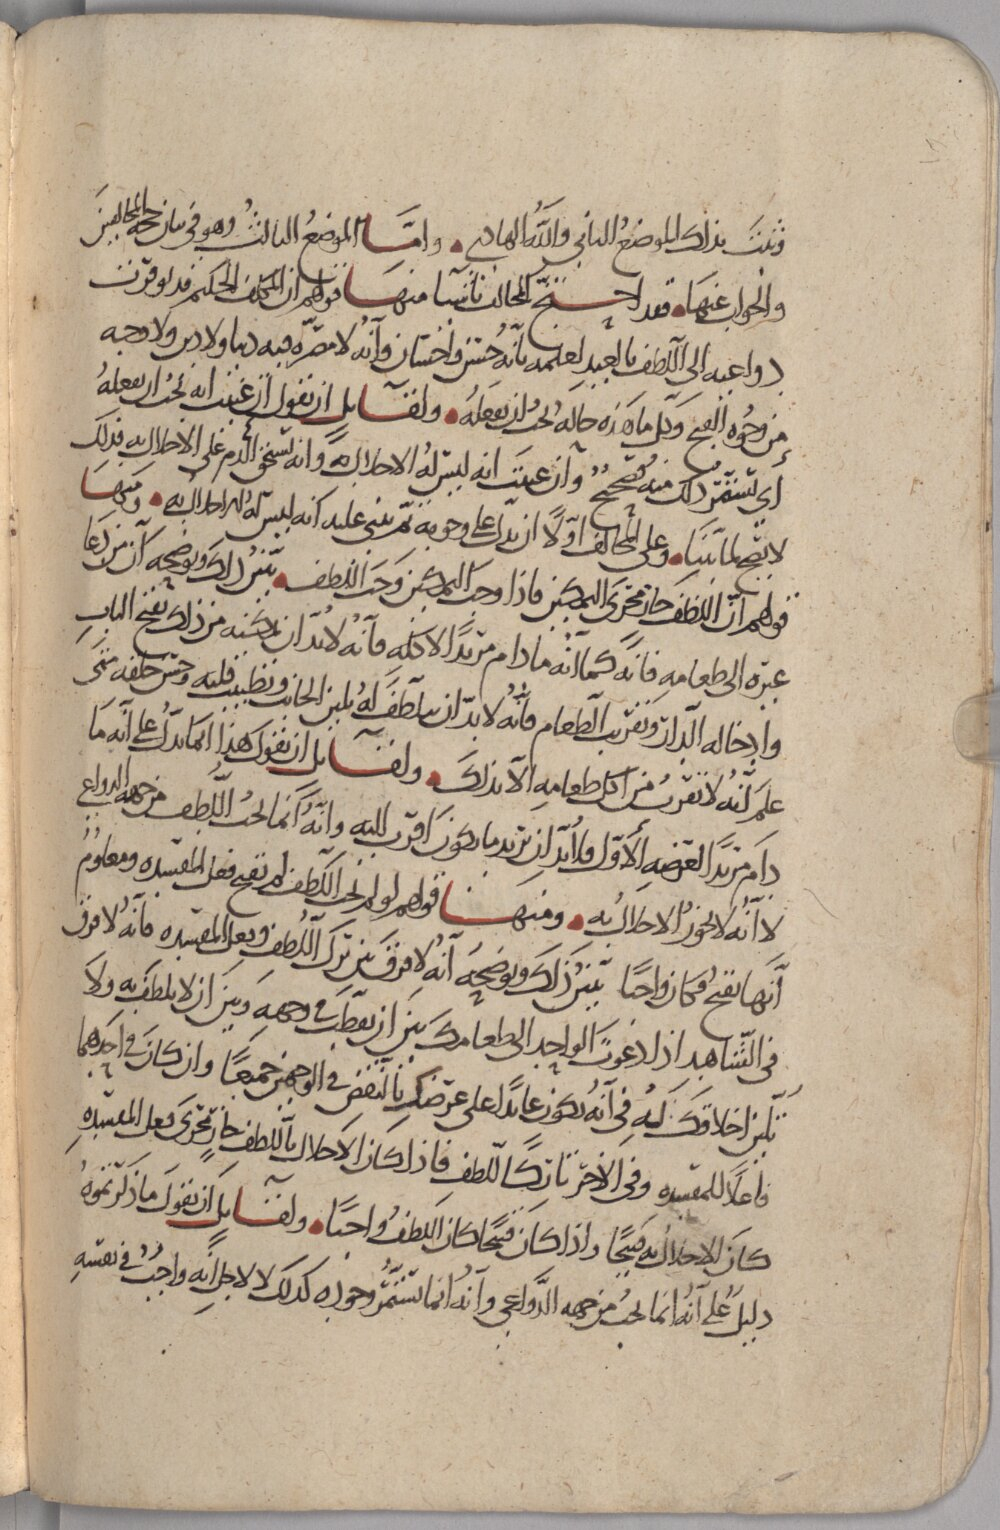 وثبت بذلك الموضع الثاني والله الهادي • واما الموضع الثالث وهو في بيان حجة المخالفين
والجواب عنها • فقد احتج المخالف باشيا منها قولهم ان المكلف الحكيم قد توفرت
دواعيه الى اللطف بالعبد لعلمه بانه حسن واحسان وانه لا مضرة فيه دنيا ولا دين ولا وجه
من وجوه القبح وكل ما هذه حاله يجب ان يفعله • ولقائل ان يقول ان عنيت انه يجب ان يفعله
أي يستمر ذلك منه فصحيح وان عنيت انه ليس له الاخلال به وانه يستحق الذم على الاخلال به فذلك
لا يصح لما بينا • وعلى المخالف اولا ان يدل على وجوبه ثم يبني عليه كنه ليس له الاخلال به • ومنها
قولهم ان اللطف جار مجرى التمكين فاذا وجب التمكين وجب اللطف • يبين ذلك ويوضحه ان من دعا
غيره الى طعامه فانه كما انه ما دام مريدا لاكله فانه لا بد ان يمكنه من ذلك بفتح الباب
وادخاله الدار وتقريب الطعام فانه لا بد ان يتلطف له بلين الجانب وتطييب قلبه وحسن خلقه متى
علم انه لا يقرب من اكل طعامه الا بذلك • ولقائل ان يقول هذا انما يدل على انه ما
دام مريدا لغرضه الاول فلا بد ان يريد ما يكون اقرب اليه وانه انما يجب اللطف من جهة الدواعي
لا انه لا يجوز الاخلال به • ومنها قولهم لو لم يجب اللطف لم يقبح فعل المفسدة ومعلوم
انها تقبح فكان واجبا يبين ذلك ويوضحه انه لا فرق بين ترك اللطف وفعل المفسدة فانه لا فرق
في الشاهد اذا دعوت الواحد الى طعامك بين ان تقطب في وجهه وبين ان لا تلطف به ولا
تلين اخلاقك له في انه يكون عائدا على غرضك بالنقض في الوجهين جميعا وان كان في احدهما
فاعلا للمفسدة وفي الاخر تاركا للطف فاذا كان الاخلال باللطف جار مجرى فعل المفسدة
كان الاخلال به قبيحا واذا كان قبيحا كان اللطف واجبا • ولقائل ان يقول ما ذكرتموه
دليل على انه انما يجب من جهة الدواعي وانه انما يستمر وجوده كذلك لا لاجل انه واجب في نفسه